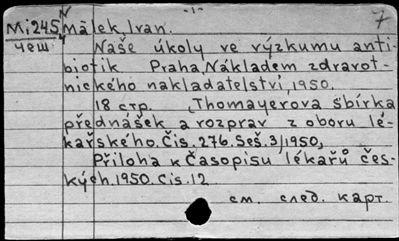 -1-
7
Mi245 Málek, Ivan.
чеш Naše úkoly ve výzkumu anti-
biotik Praha, Nákladem zdravot-
nického nakladatelství, 1950.
18 стр. (Thomayerova sbírka
přednášek a rozprav z oboru lé-
kařského. Čis. 276. Seš. 3), 1950,
Příloha k Časopisu lékařů čes-
kých. 1950. Cis. 12
см. след. карт.